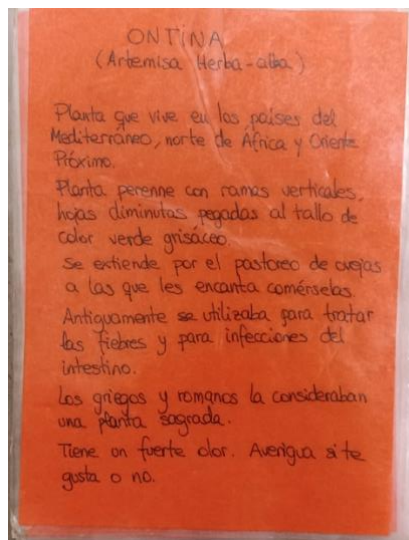 ONTINA
(Artemisa Herba-alba)
Planta que vive en los países del
Mediterráneo, norte de África y Oriente
Próximo.
Planta perenne con ramas verticales,
hojas diminutas pegadas al tallo de
color verde grisáceo.
Se extiende por el pastoreo de ovejas
a las que les encanta comérselas.
Antiguamente se utilizaba para tratar
las fiebres y para infecciones del
intestino.
Los griegos y romanos la consideraban
una planta sagrada.
Tiene un fuerte olor. Averigua si te
gusta o no.